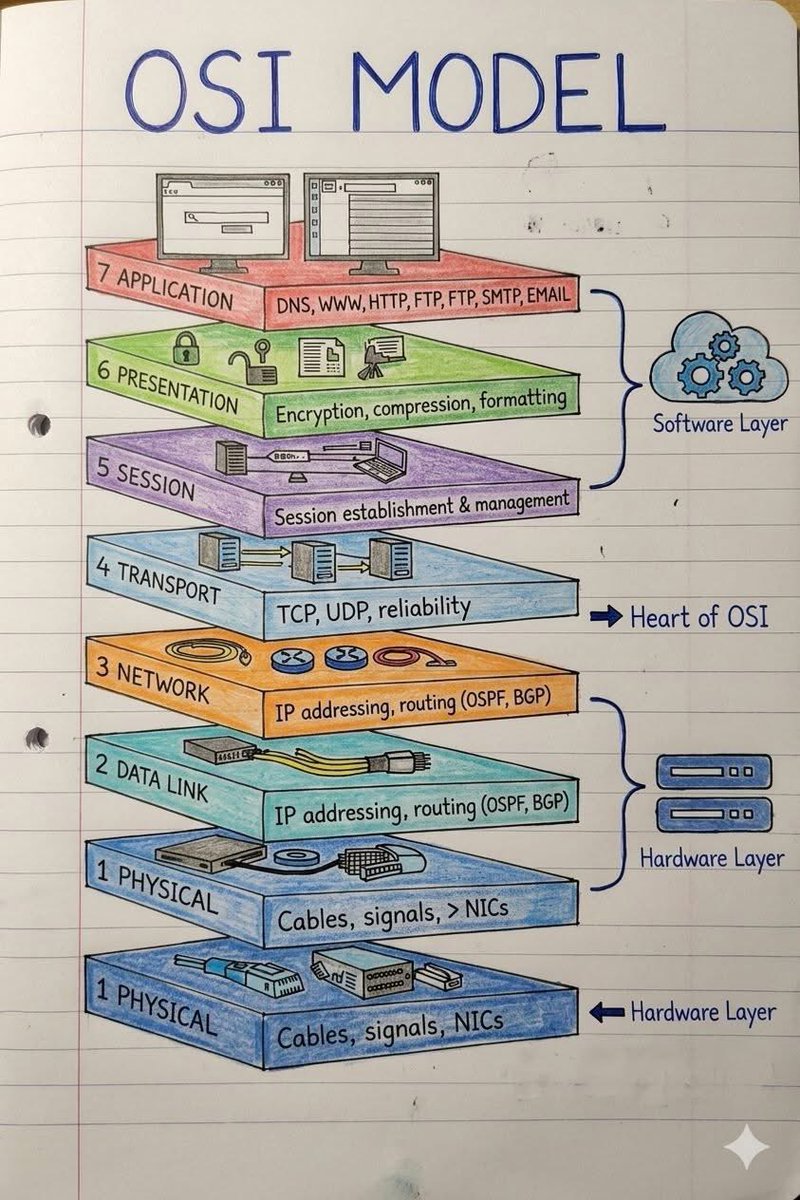 OSI MODEL
7 APPLICATION
DNS, WWW, HTTP, FTP, FTP, SMTP, EMAIL
6 PRESENTATION
Encryption, compression, formatting
Software Layer
5 SESSION
Session establishment & management
4 TRANSPORT
TCP, UDP, reliability
Heart of OSI
3 NETWORK
IP addressing, routing (OSPF, BGP)
2 DATA LINK
IP addressing, routing (OSPF, BGP)
Hardware Layer
1 PHYSICAL
Cables, signals, > NICs
1 PHYSICAL
Cables, signals, NICs
Hardware Layer